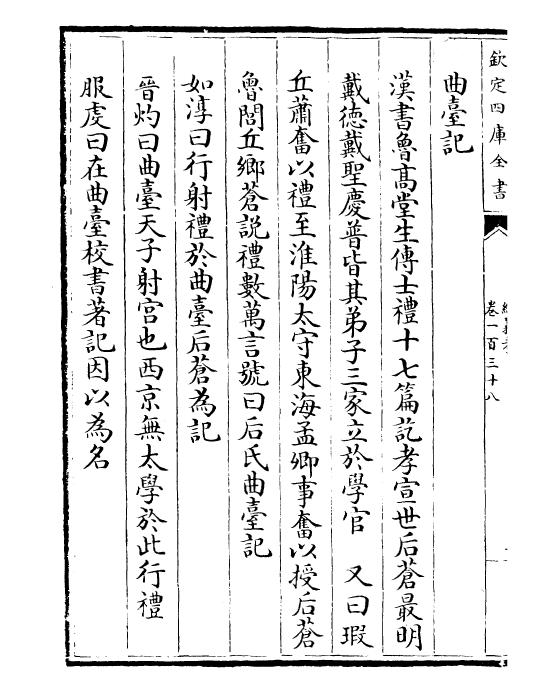 欽定四庫全書
卷一百三十八
曲臺記
漢書魯髙堂生傳士禮十七篇訖孝宣世后蒼最明
戴徳戴聖慶普皆其弟子三家立於學官　又曰瑕
丘蕭奮以禮至淮陽太守東海孟卿事奮以授后蒼
魯閭丘鄉蒼説禮數萬言號曰后氏曲臺記
如淳曰行射禮於曲臺后蒼為記
晉灼曰曲臺天子射宫也西京無太學於此行禮
服䖍曰在曲臺校書著記因以為名